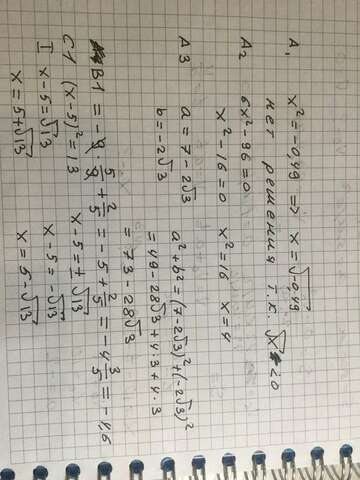 A1 x² = -0,49 => x = √-0,49
нет решения т.к. √x ≥ 0
A2 6x² - 96 = 0
x² - 16 = 0 x² = 16 x = 4
A3 a = 7 - 2√3 a² + b² = (7 - 2√3)² + (-2√3)²
b = -2√3 = 49 - 28√3 + 4·3 + 4·3
= 73 - 28√3
B1 = -9 · 5/9 + 2/5 = -5 + 2/5 = -4 3/5 = -4,6
C1 (x-5)² = 13 x-5 = ±√13
I x-5 = √13 x-5 = -√13
x = 5+√13 x = 5-√13